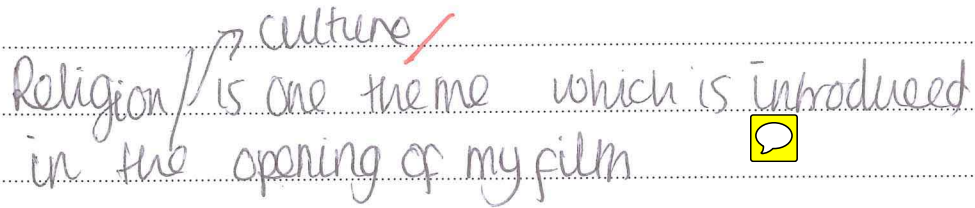 culture
Religion/ is one theme which is introduceed
in the opening of my film